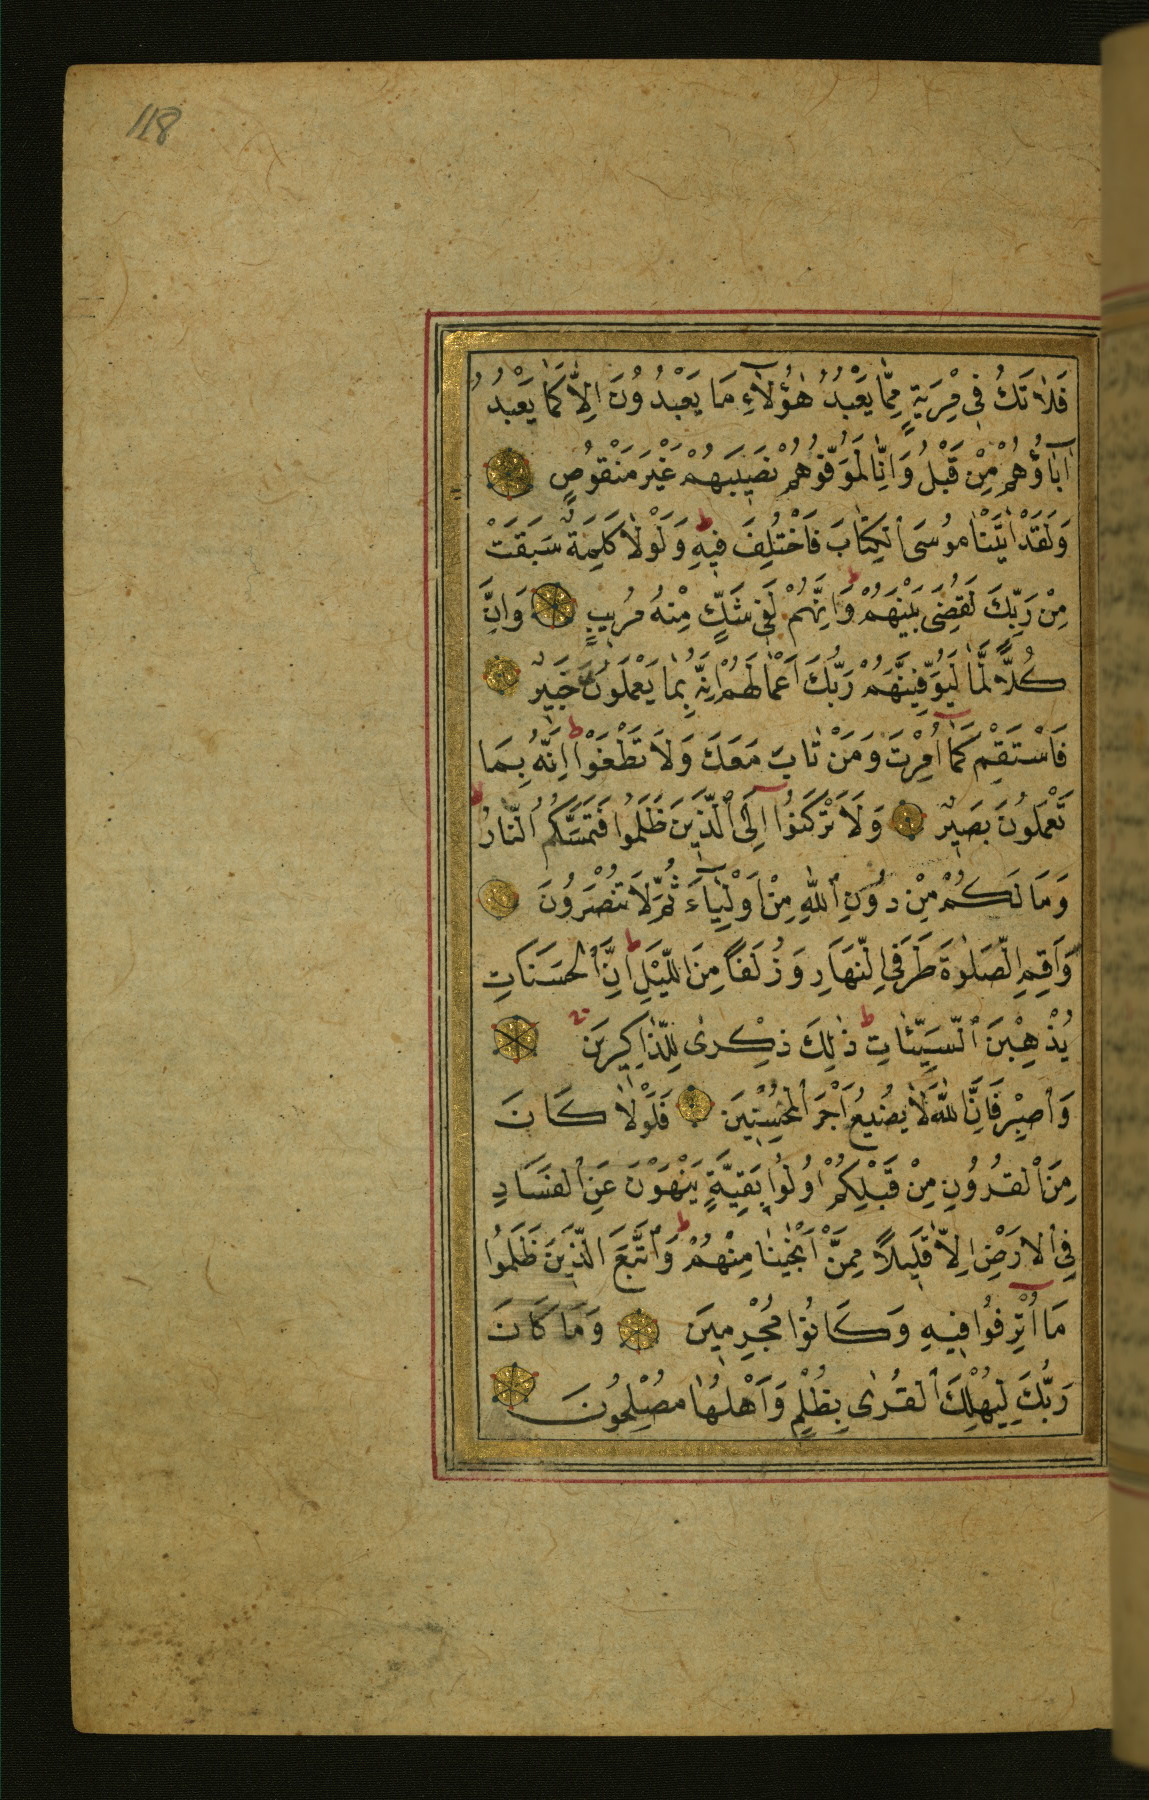 118
فَلَا تَكُ فِي مِرْيَةٍ مِمَّا يَعْبُدُ هٰؤُلَآءِ مَا يَعْبُدُونَ اِلَّا كَمَا يَعْبُدُ
اٰبَاؤُهُمْ مِنْ قَبْلُ وَاِنَّا لَمُوَفُّوهُمْ نَصِيبَهُمْ غَيْرَ مَنْقُوصٍ
وَلَقَدْ اٰتَيْنَا مُوسَى ٱلْكِتَابَ فَاخْتُلِفَ فِيهِ ط وَلَوْلَا كَلِمَةٌ سَبَقَتْ
مِنْ رَبِّكَ لَقُضِيَ بَيْنَهُمْ ط وَاِنَّهُمْ لَفِي شَكٍّ مِنْهُ مُرِيبٍ وَاِنَّ
كُلًّا لَمَّا لَيُوَفِّيَنَّهُمْ رَبُّكَ اَعْمَالَهُمْ اِنَّهُ بِمَا يَعْمَلُونَ خَبِيرٌ
فَاسْتَقِمْ كَمَآ اُمِرْتَ وَمَنْ تَابَ مَعَكَ وَلَا تَطْغَوْا ط اِنَّهُ بِمَا
تَعْمَلُونَ بَصِيرٌ وَلَا تَرْكَنُوٓا اِلَى ٱلَّذِينَ ظَلَمُوا فَتَمَسَّكُمُ النَّارُ ط
وَمَا لَكُمْ مِنْ دُونِ ٱللّٰهِ مِنْ اَوْلِيَآءَ ثُمَّ لَا تُنْصَرُونَ
وَاَقِمِ الصَّلٰوةَ طَرَفَيِ النَّهَارِ وَزُلَفًا مِنَ اللَّيْلِ ط اِنَّ ٱلْحَسَنَاتِ
يُذْهِبْنَ ٱلسَّيِّئَاتِ ط ذٰلِكَ ذِكْرٰى لِلذَّاكِرِينَ
وَٱصْبِرْ فَاِنَّ اللّٰهَ لَا يُضِيعُ اَجْرَ ٱلْمُحْسِنِينَ فَلَوْلَا كَانَ
مِنَ ٱلْقُرُونِ مِنْ قَبْلِكُمْ اُولُوا بَقِيَّةٍ يَنْهَوْنَ عَنِ ٱلْفَسَادِ
فِي ٱلْاَرْضِ اِلَّا قَلِيلًا مِمَّنْ اَنْجَيْنَا مِنْهُمْ ط وَٱتَّبَعَ الَّذِينَ ظَلَمُوا
مَآ اُتْرِفُوا فِيهِ وَكَانُوا مُجْرِمِينَ وَمَا كَانَ
رَبُّكَ لِيُهْلِكَ ٱلْقُرٰى بِظُلْمٍ وَاَهْلُهَا مُصْلِحُونَ